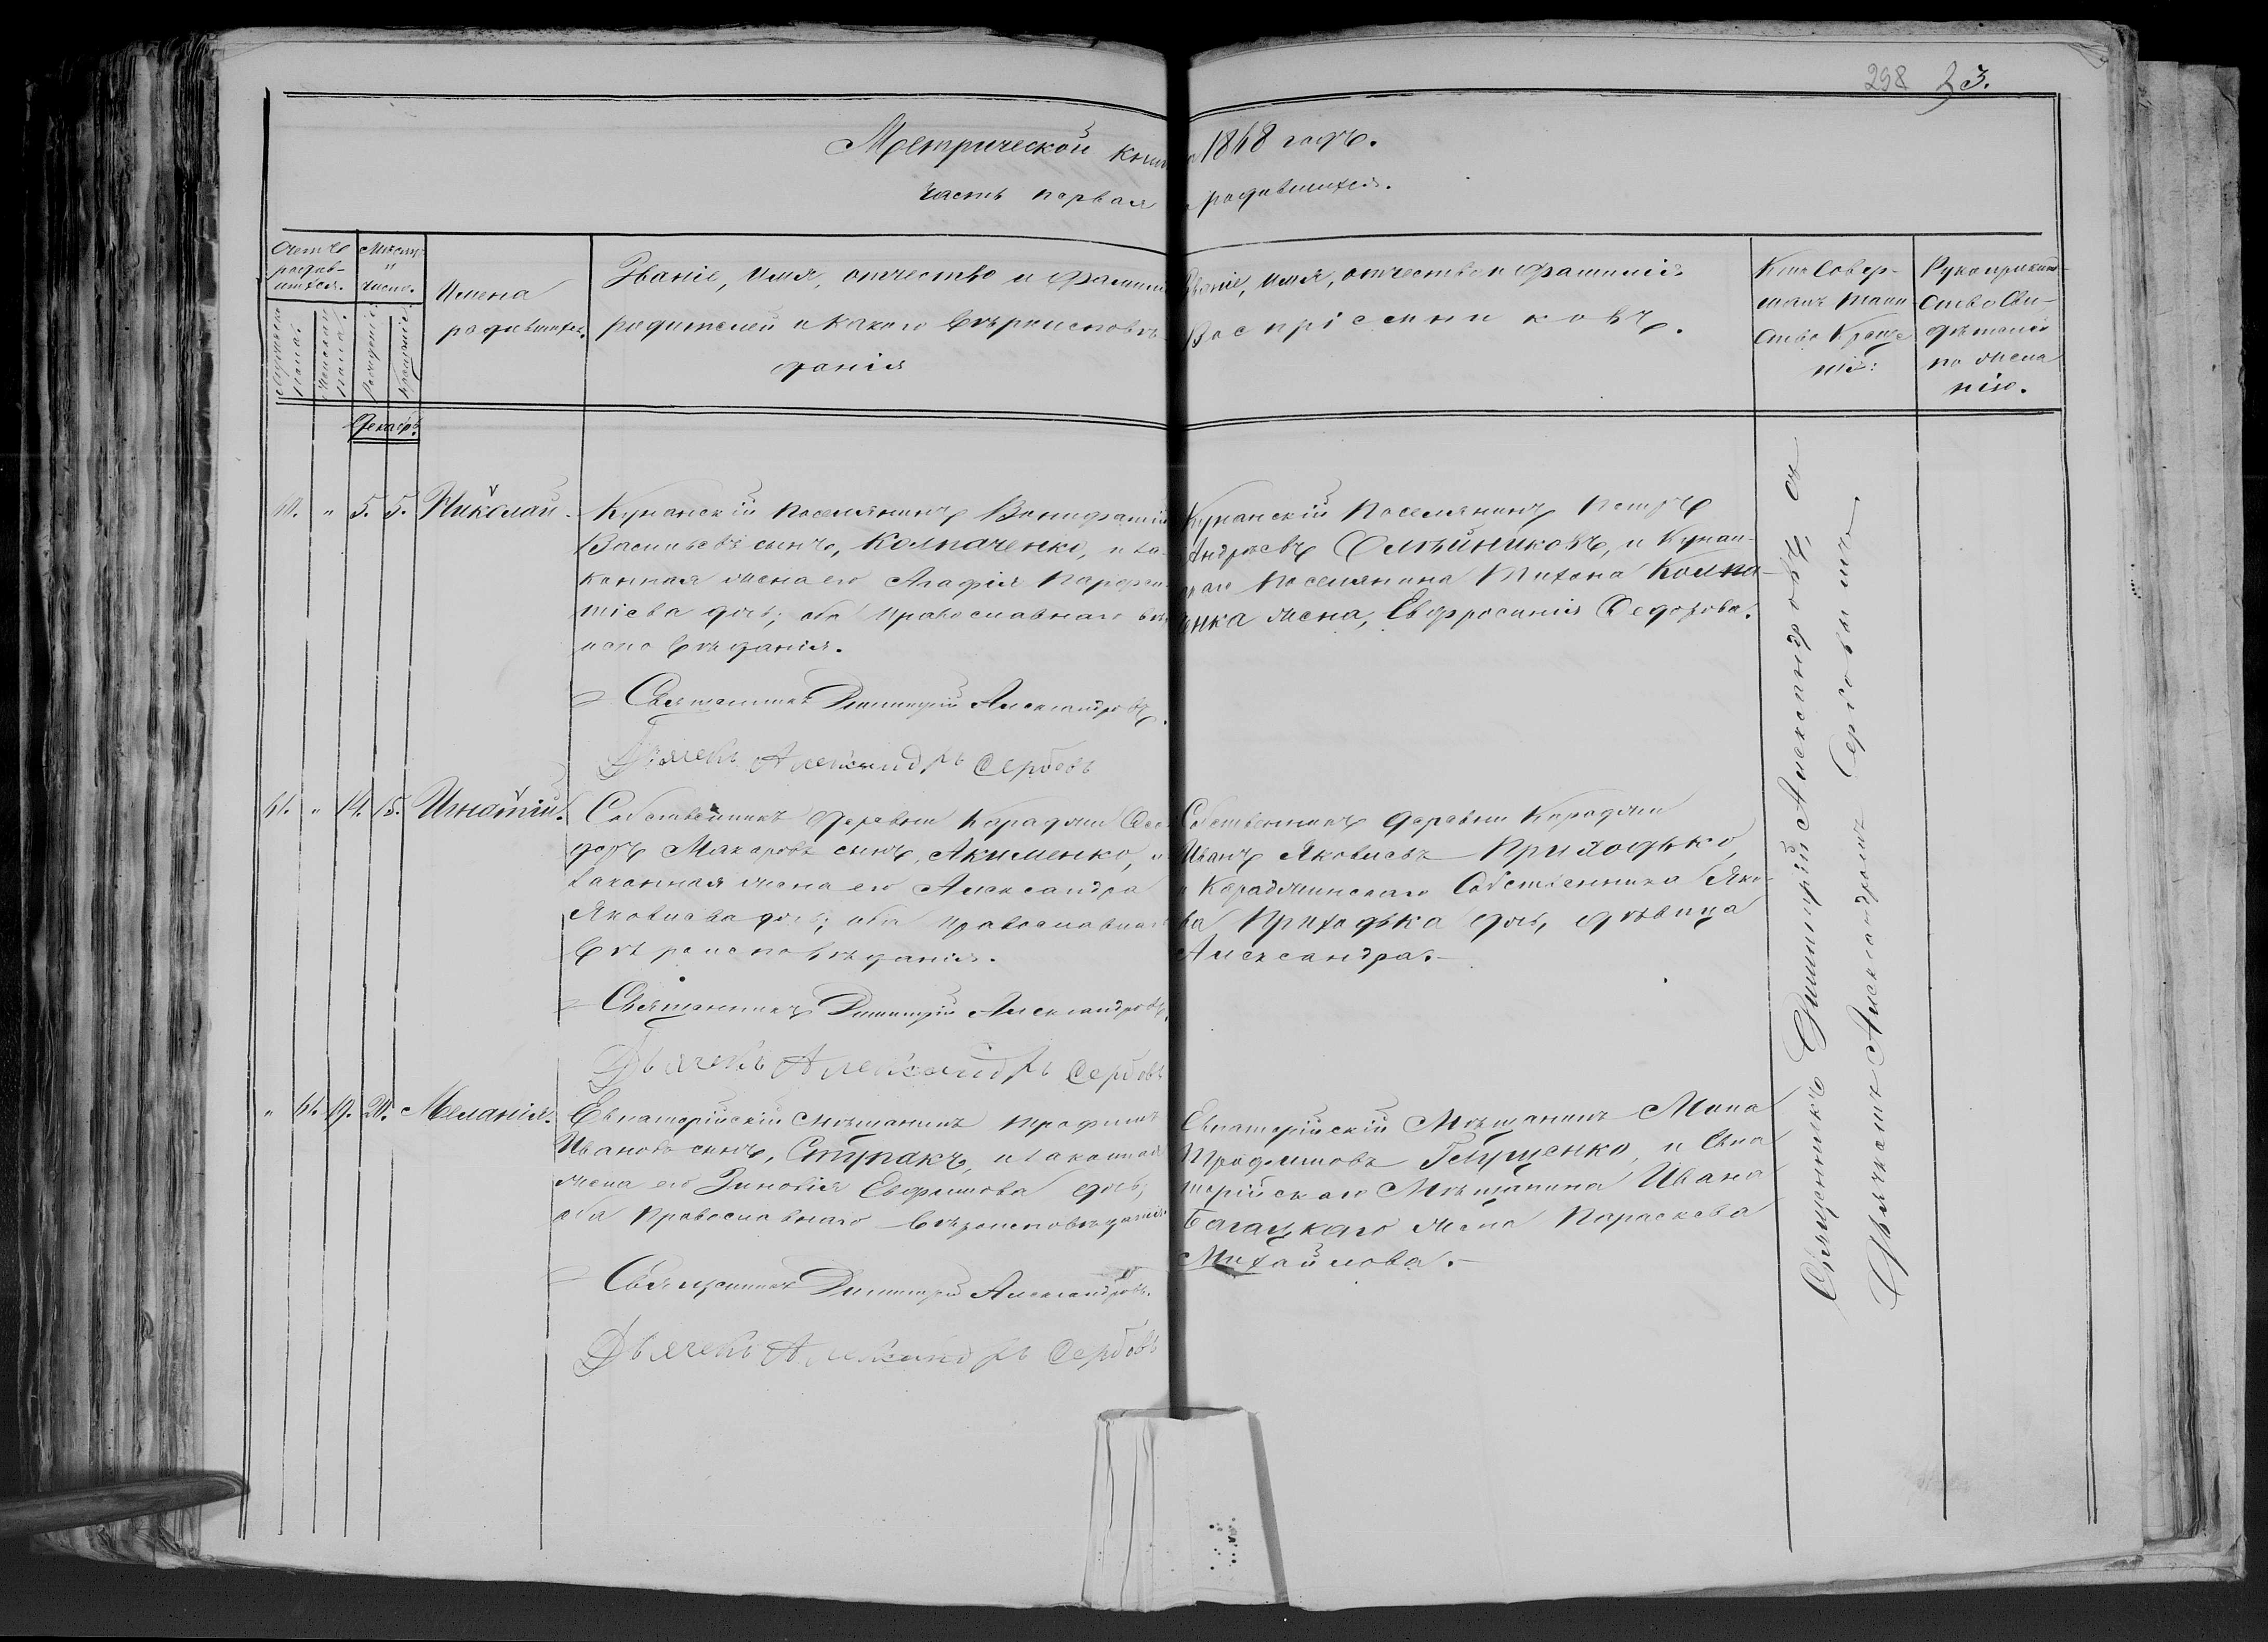 298 23.
Метрической книги 1868 годъ.
Часть первая родившихся.
Счетъ родив- шихся.
Мѣсяцъ и число.
Мужеска пола.
Женскаго пола.
Рожденія:
Крещенія:
Имена родившихся.
Званіе, имя, отчество и фамилія
родителей и какого вѣроисповѣ-
данія
Званіе, имя, отчество и фамилія
Воспріемниковъ.
Кто совер-
шалъ таин-
ство Креще
нія:
Рукоприклад-
ство сви-
дѣтелей
по жела
нію.
Декабрь.
" 5. 5. Николай.
Куманскій поселянинъ Вонифатій
Васильевъ сынъ, Колпаченко, и за-
конная жена его Агафія Парфен-
тіева дочь; оба православнаго вѣро
исповѣданія.
Священникъ Димитрій Александровъ.
Дьячекъ Александръ Сербовъ
Куманскій поселянинъ Петръ
Андреевъ Олѣйниковъ, и Куман-
поселянина Тихона Колпа-
жена, Евфросинія Ѳедорова.
41. " 14. 15. Игнатій.
Собственникъ деревни Караджи Ѳео
доръ Макаровъ сынъ, Акименко, и
законная жена его Александра
Яковлева дочь; оба православнаго
вѣроисповѣданія.
Священникъ Димитрій Александровъ.
Дьячекъ Александръ Сербовъ
Собственникъ деревни Караджи
Иванъ Яковлевъ Приходько,
и Караджинскаго Собственника Яко-
ва Приходька дочь, дѣвица
Александра.
" 41. 19. 20. Меланія.
Евпаторійскій мѣщанинъ Трофимъ
Ивановъ сынъ, Ступакъ, и законная
жена его Зиновія Евфимова дочь;
оба Православнаго вѣроисповѣданія
Священникъ Димитрій Александровъ.
Дьячекъ Александръ Сербовъ
Евпаторійскій Мѣщанинъ Мина
Трофимовъ Глущенко, и Евпа
торійскаго Мѣщанина Ивана
Багацкаго жена Параскева
Михайлова.
Священникъ Димитрій Александровъ, съ
Дьячкомъ Александромъ Сербовымъ.